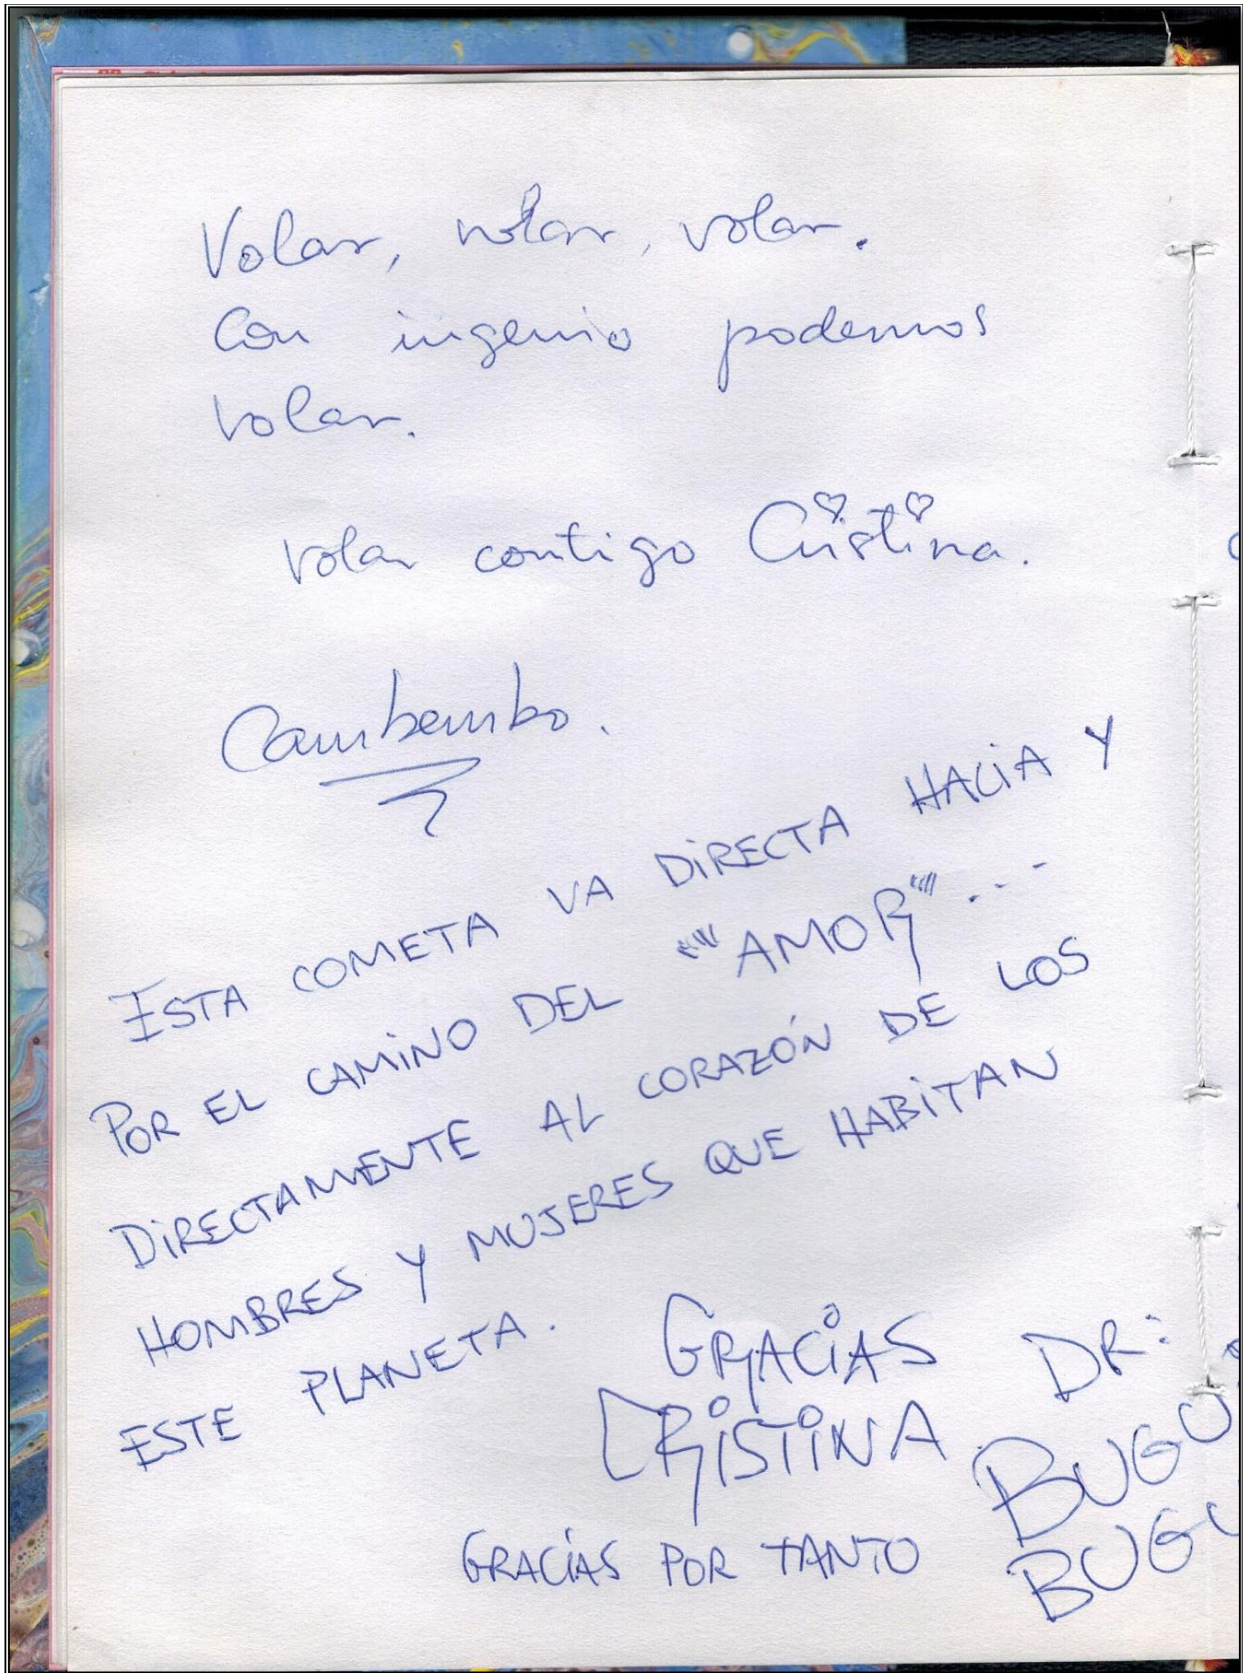 Volar, volar, volar.
Con ingenio podemos
volar.
volar contigo Cristina.
Cambembo.
ESTA COMETA VA DIRECTA HACIA Y
POR EL CAMINO DEL ""AMOR""...
DIRECTAMENTE AL CORAZÓN DE LOS
HOMBRES Y MUJERES QUE HABITAN
ESTE PLANETA.
GRACIAS
CRISTINA
GRACIAS POR TANTO
DR:
BUGU
BUGU